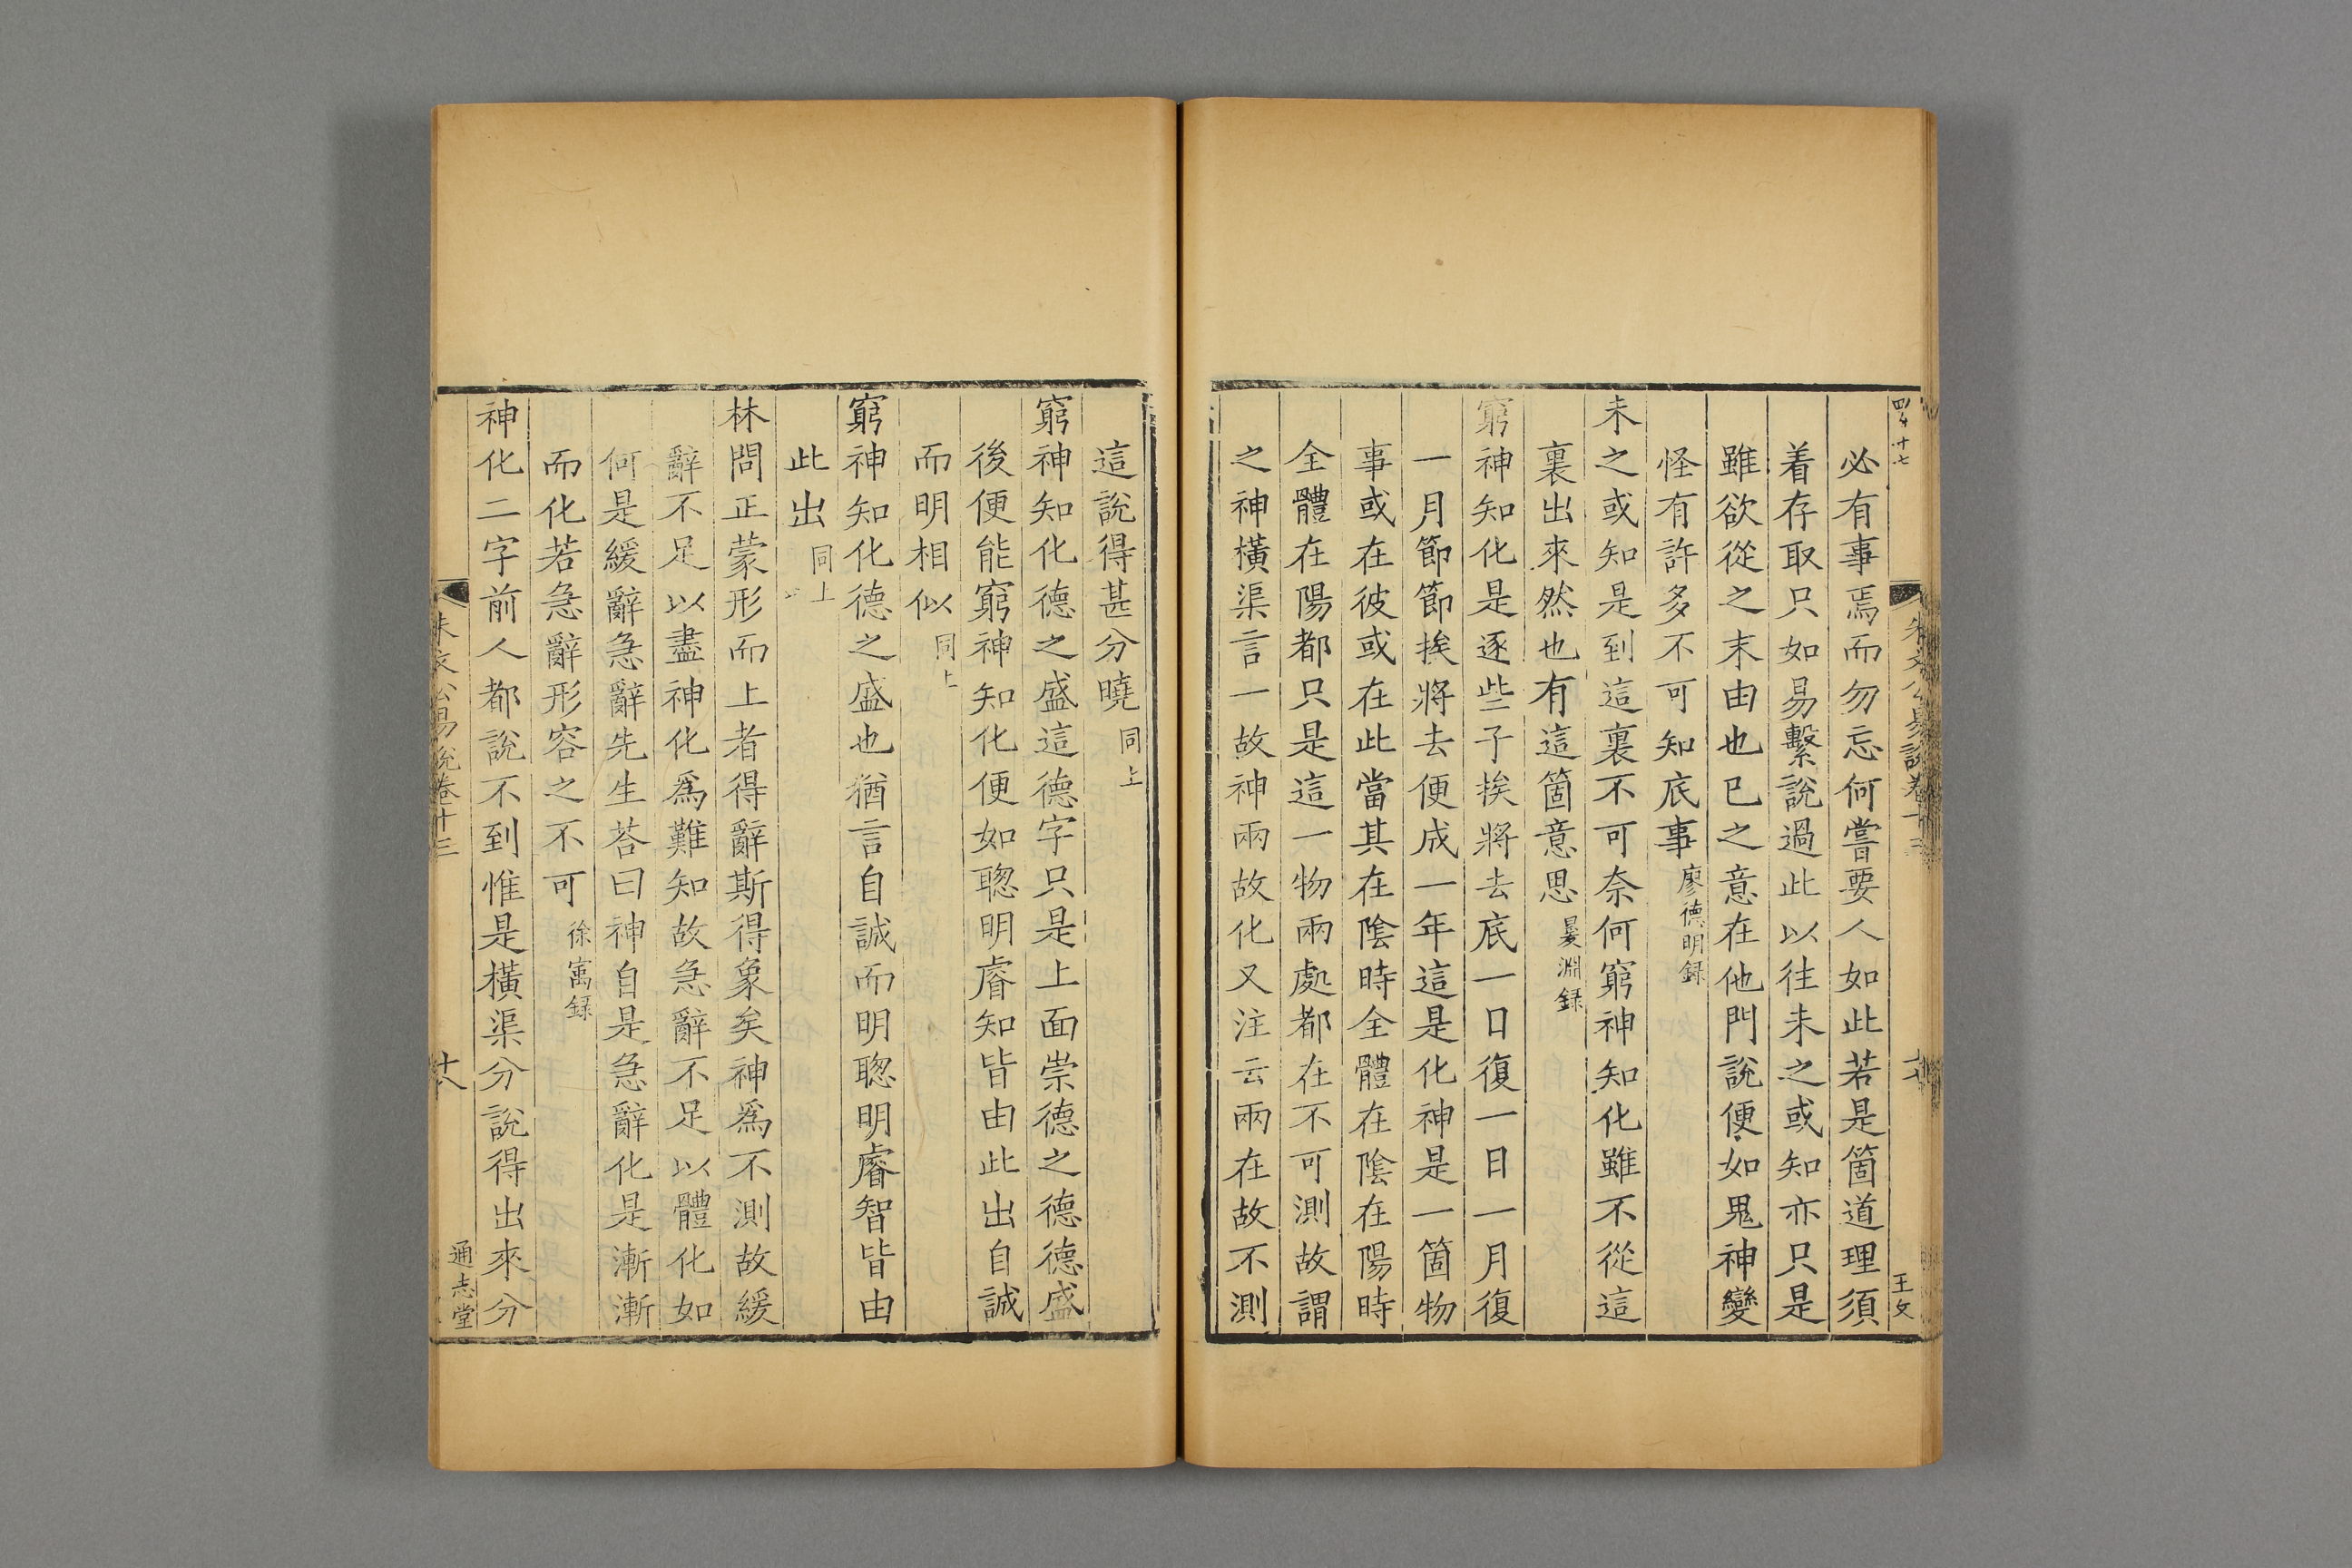 必有事焉而勿忘何嘗要人如此若是箇道理須
着存取只如易繫說過此以往未之或知亦只是
雖欲從之末由也已之意在他門說便如鬼神變
怪有許多不可知底事廖德明録
未之或知是到這裏不可奈何窮神知化雖不從這
裏出來然也有這箇意思㬊淵録
窮神知化是逐些子挨將去底一日復一日一月復
一月節節挨將去便成一年這是化神是一箇物
事或在彼或在此當其在陰時全體在陰在陽時
全體在陽都只是這一物兩處都在不可測故謂
之神橫渠言一故神兩故化又注云兩在故不測
王文
這說得甚分曉同上
窮神知化德之盛這德字只是上面崇德之德德盛
後便能窮神知化便如聰明睿知皆由此出自誠
而明相似同上
窮神知化德之盛也猶言自誠而明聰明睿智皆由
此出同上
林問正蒙形而上者得辭斯得象矣神爲不測故緩
辭不足以盡神化爲難知故急辭不足以體化如
何是緩辭急辭先生荅曰神自是急辭化是漸漸
而化若急辭形容之不可徐寓録
神化二字前人都說不到惟是橫渠分說得出來分
朱文公易說卷十三
十八
通志堂